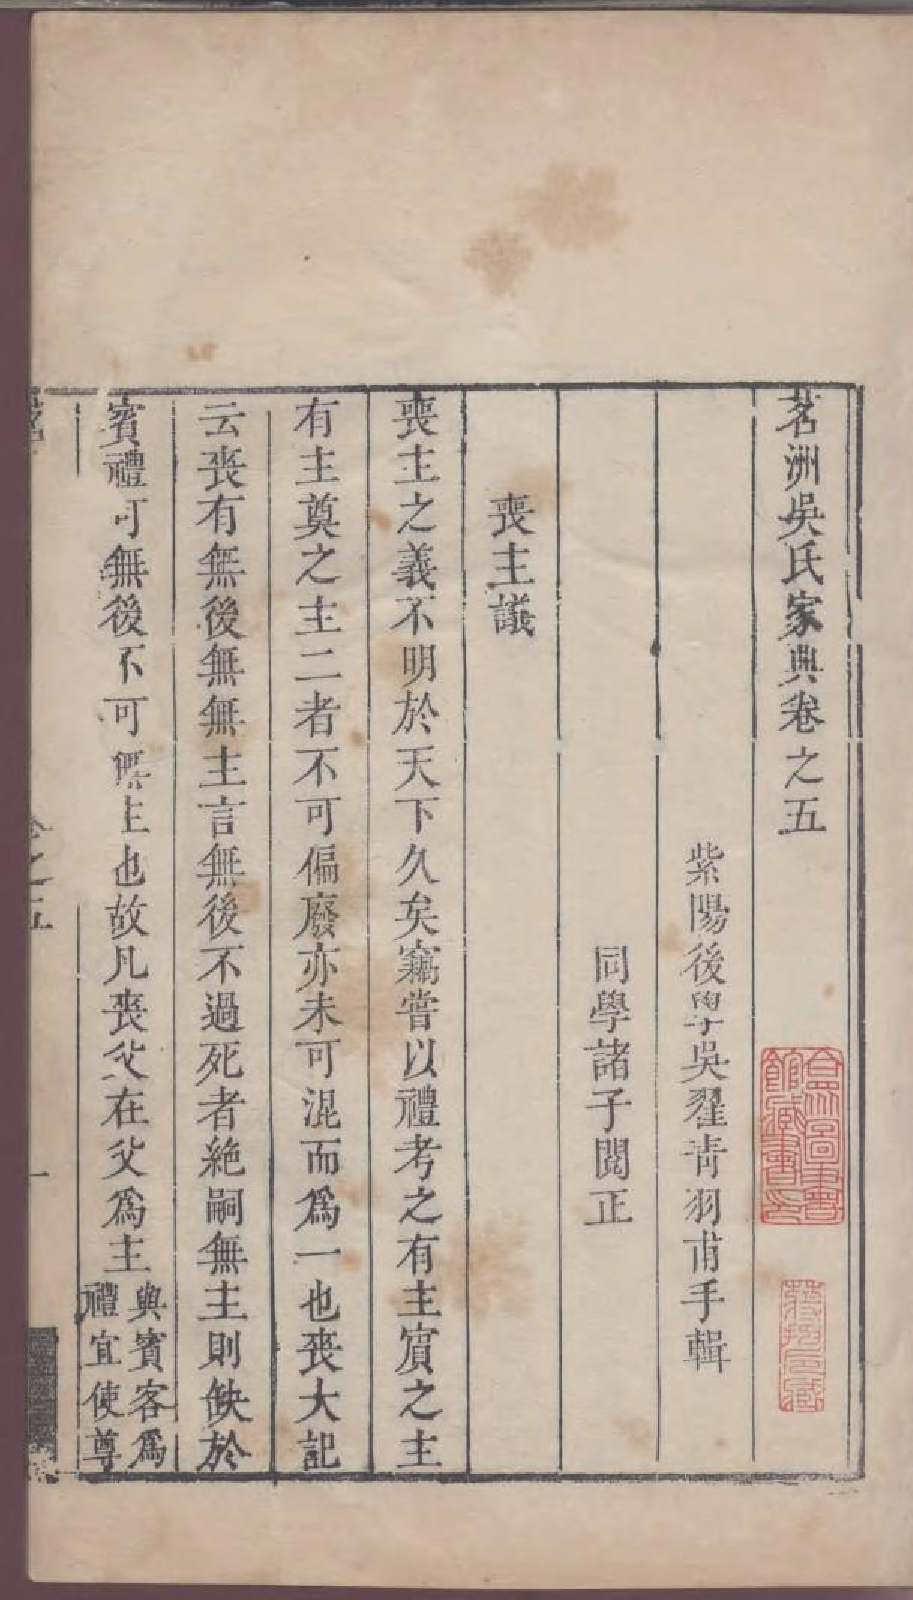 茗洲吳氏家典卷之五
紫陽後學吳翟青羽甫手輯
同學諸子閱正
喪主議
喪主之義不明於天下久矣竊嘗以禮考之有主賓之主
有主奠之主二者不可偏廢亦未可混而爲一也喪大記
云喪有無後無無主言無後不過死者絶嗣無主則缺於
賓禮可無後不可無主也故凡喪父在父爲主
與賓客爲
禮宜使尊
卷之五
一